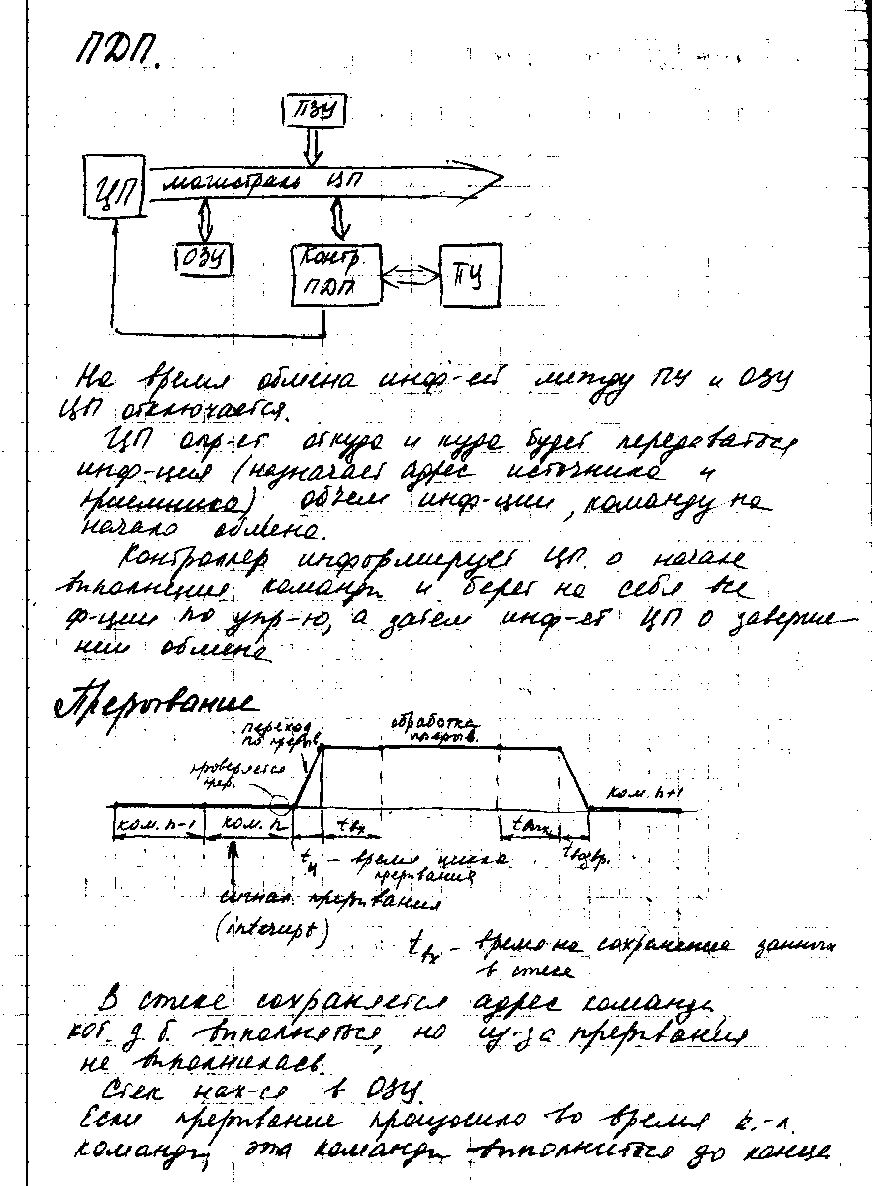 ПДП.
ПЗУ
ЦП
магистраль ЦП
ОЗУ
Контр.
ПДП
ПУ
На время обмена инф-ей между ПУ и ОЗУ
ЦП отключается.
ЦП опр-ет откуда и куда будет передаваться
инф-ция (назначает адрес источника и
приемника) объем инф-ции, команду на
начало обмена.
Контроллер информирует ЦП о начале
выполнения команды и берет на себя все
ф-ции по упр-ю, а затем инф-ет ЦП о заверше-
нии обмена
Прерывание
переход
по прерыв.
обработка
прерыв.
проверяется
прер.
ком. n+1
ком. n-1
ком. n
tвх
tвых
tвозвр.
tц - время цикла
прерывания
сигнал прерывания
(interupt)
tвх - время на сохранение данных
в стеке
В стеке сохраняется адрес команды,
кот. д.б. выполняться, но из-за прерывания
не выполнилась.
Стек нах-ся в ОЗУ.
Если прерывание произошло во время к.-л.
команды, эта команда выполнится до конца